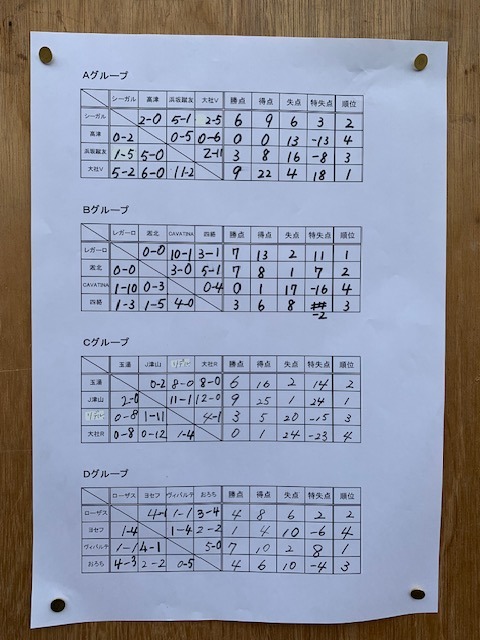 Aグループ
シーガル 高津 浜坂蹴友 大社V 勝点 得点 失点 特失点 順位
シーガル 2-0 5-1 2-5 6 9 6 3 2
高津 0-2 0-5 0-6 0 0 13 -13 4
浜坂蹴友 1-5 5-0 2-11 3 8 16 -8 3
大社V 5-2 6-0 11-2 9 22 4 18 1
Bグループ
レガーロ 淞北 CAVATINA 四絡 勝点 得点 失点 特失点 順位
レガーロ 0-0 10-1 3-1 7 13 2 11 1
淞北 0-0 3-0 5-1 7 8 1 7 2
CAVATINA 1-10 0-3 0-4 0 1 17 -16 4
四絡 1-3 1-5 4-0 3 6 8 -2 3
Cグループ
玉湯 J津山 リデル 大社R 勝点 得点 失点 特失点 順位
玉湯 0-2 8-0 8-0 6 16 2 14 2
J津山 2-0 11-1 12-0 9 25 1 24 1
リデル 0-8 1-11 4-1 3 5 20 -15 3
大社R 0-8 0-12 1-4 0 1 24 -23 4
Dグループ
ローザス ヨセフ ヴィパルテ おろち 勝点 得点 失点 特失点 順位
ローザス 4-1 1-1 3-4 4 8 6 2 2
ヨセフ 1-4 1-4 2-2 1 4 10 -6 4
ヴィパルテ 1-1 4-1 5-0 7 10 2 8 1
おろち 4-3 2-2 0-5 4 6 10 -4 3